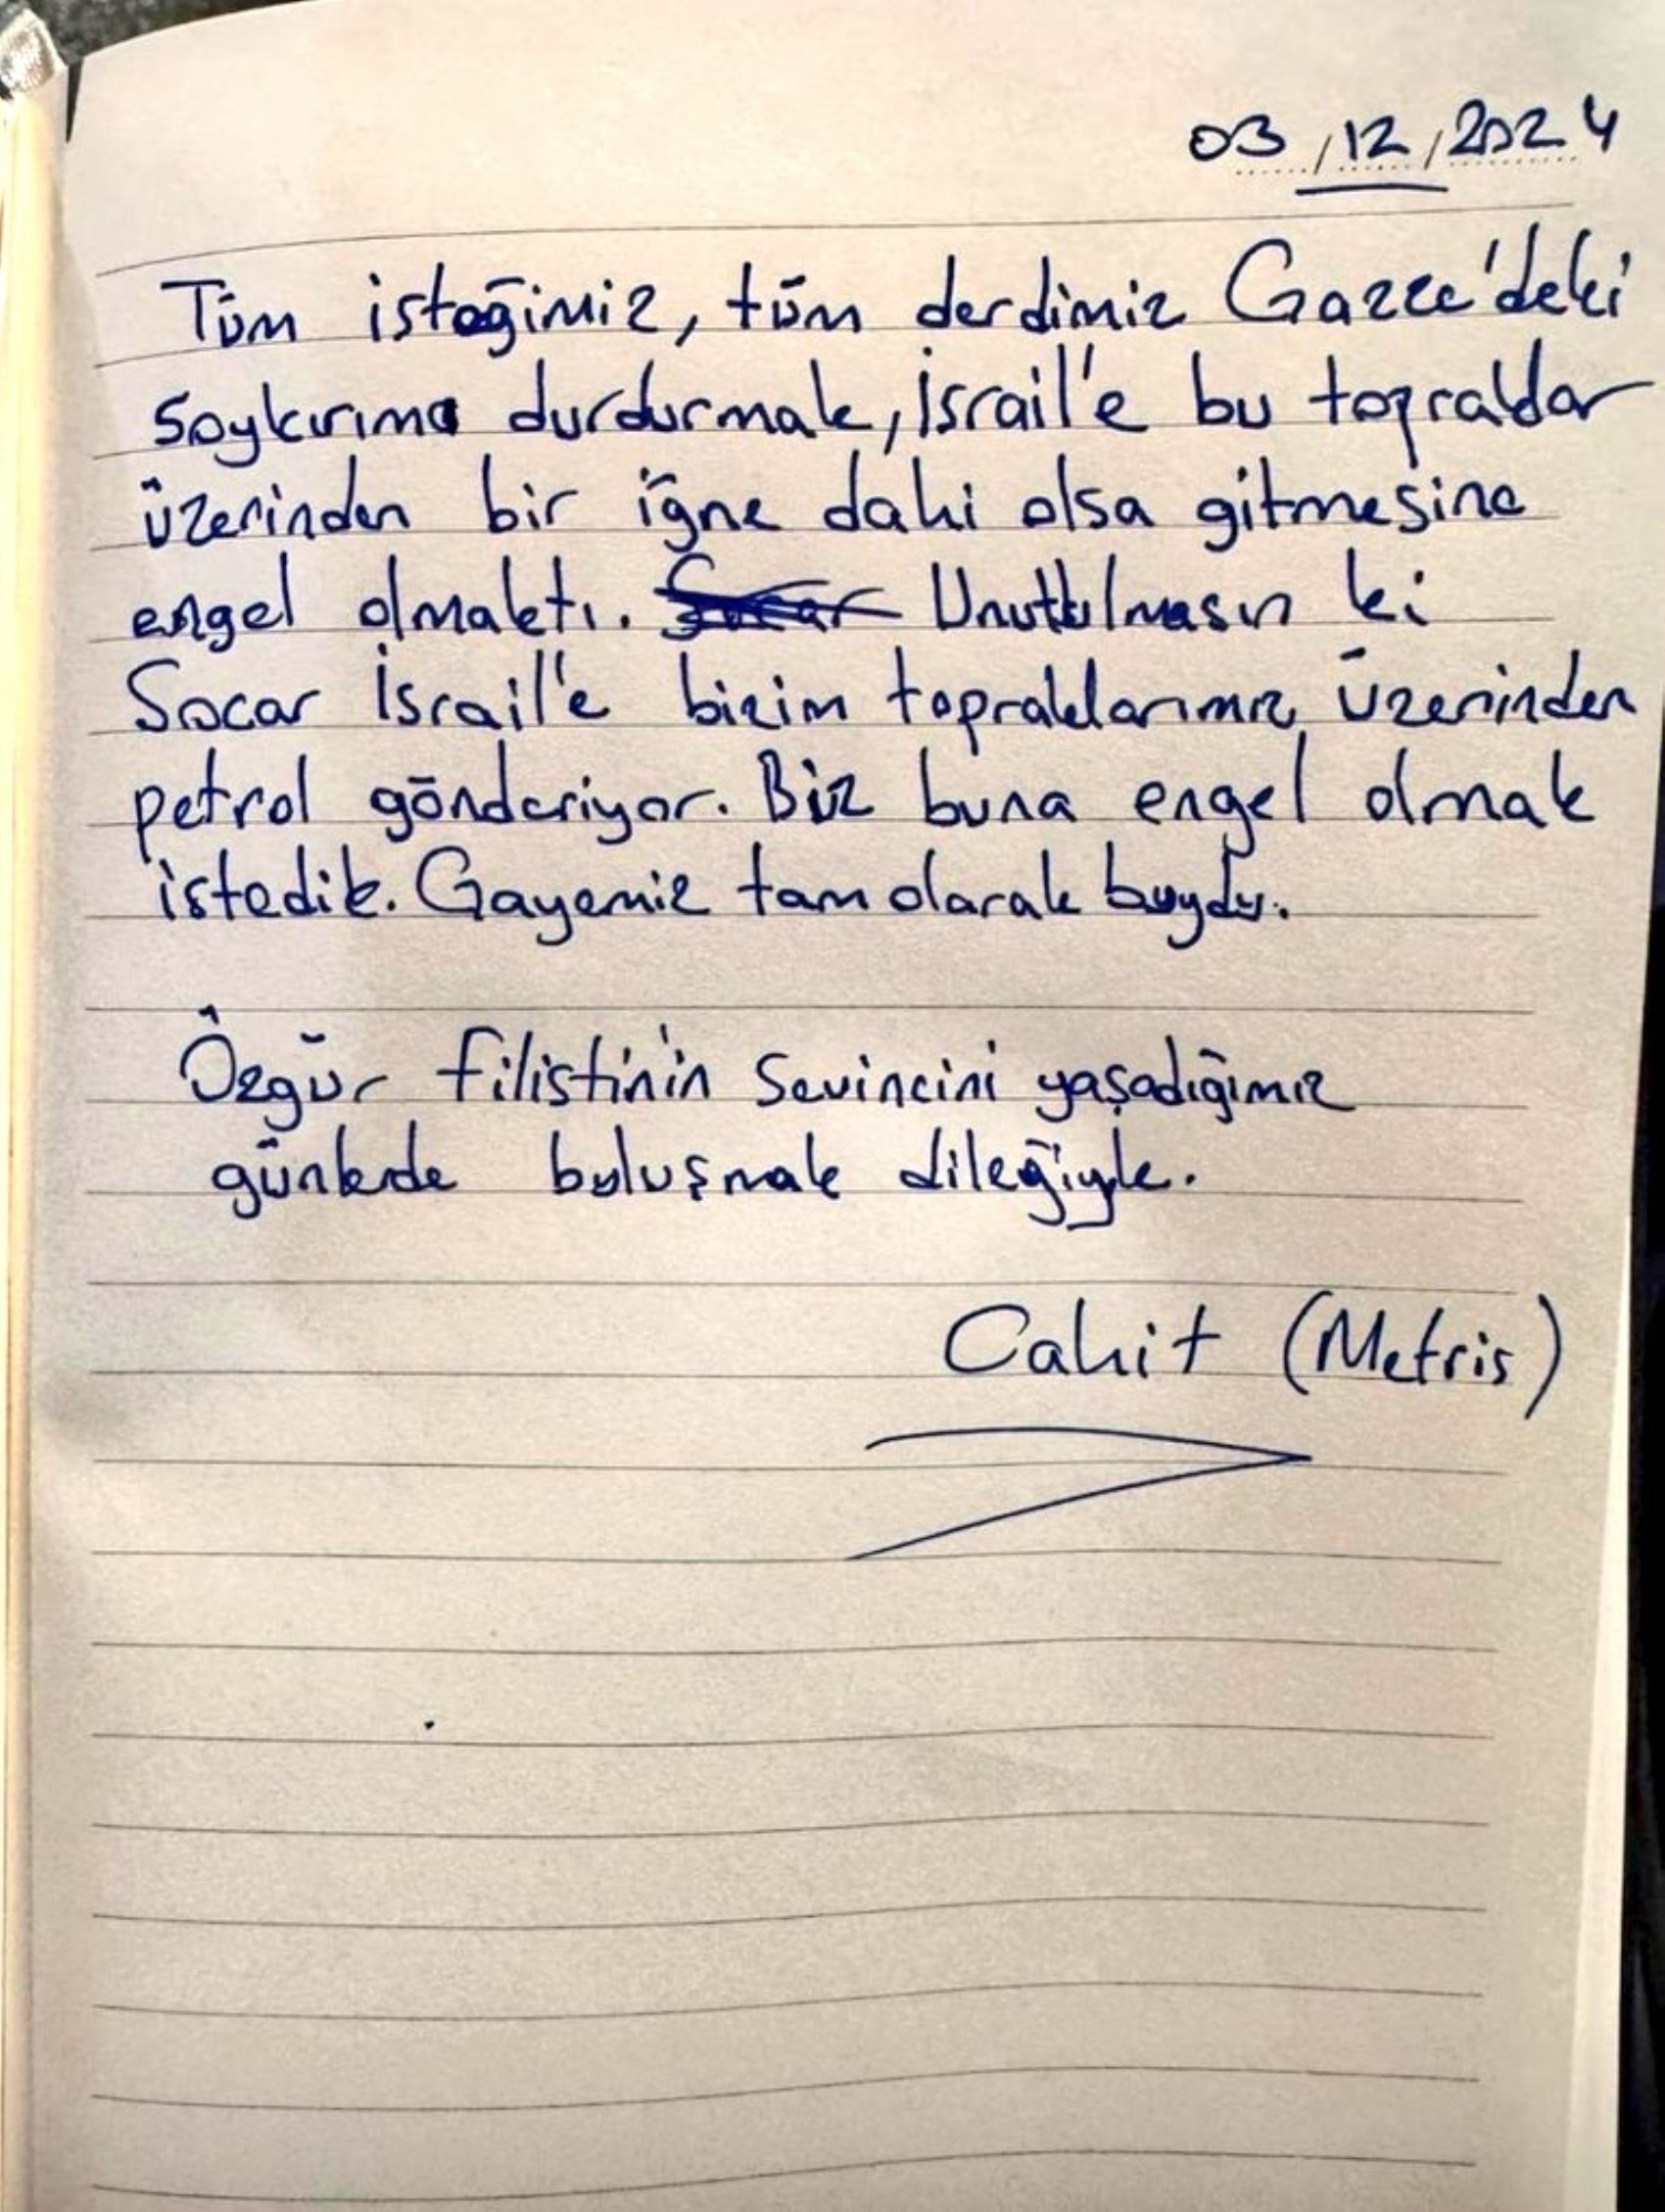 03/12/2024
Tüm isteğimiz, tüm derdimiz Gazze'deki
soykırımı durdurmak, İsrail'e bu topraklar
üzerinden bir iğne dahi olsa gitmesine
engel olmaktı. Socar Unutulmasın ki
Socar İsrail'e bizim topraklarımız üzerinden
petrol gönderiyor. Biz buna engel olmak
istedik. Gayemiz tam olarak buydu.
Özgür Filistin'in sevincini yaşadığımız
günlerde buluşmak dileğiyle.
Cahit (Metris)